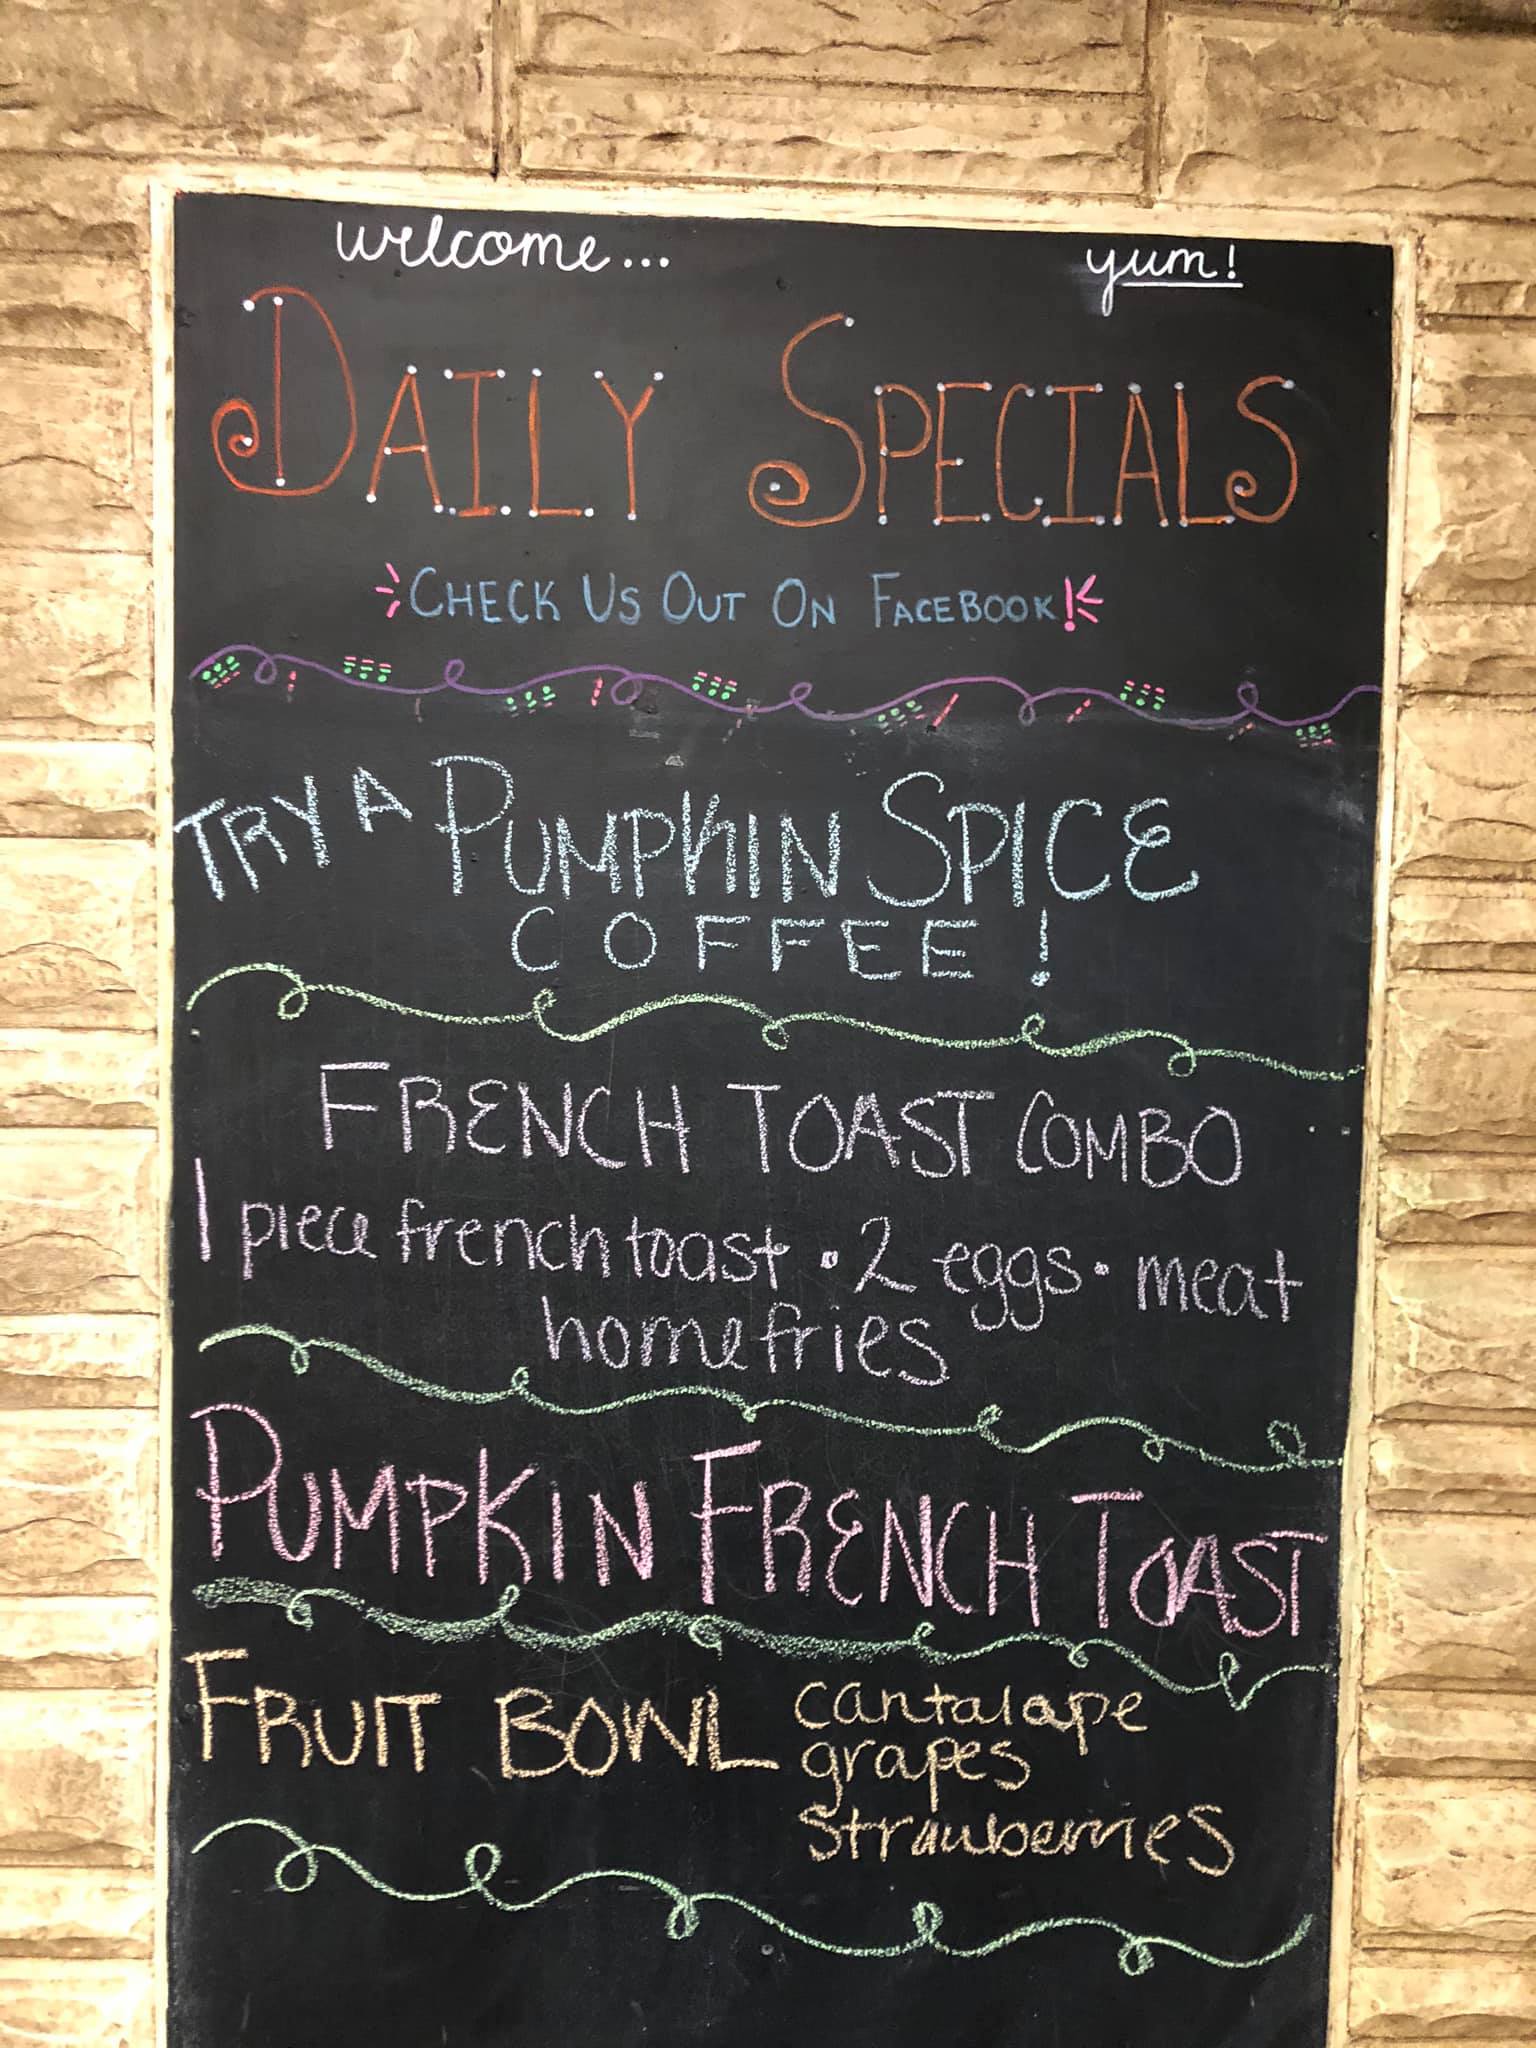 welcome... yum!
DAILY SPECIALS
CHECK US OUT ON FACEBOOK!
TRY A PUMPKIN SPICE
COFFEE!
FRENCH TOAST COMBO
1 piece french toast • 2 eggs • meat
homefries
PUMPKIN FRENCH TOAST
FRUIT BOWL cantalope
grapes
strawberries